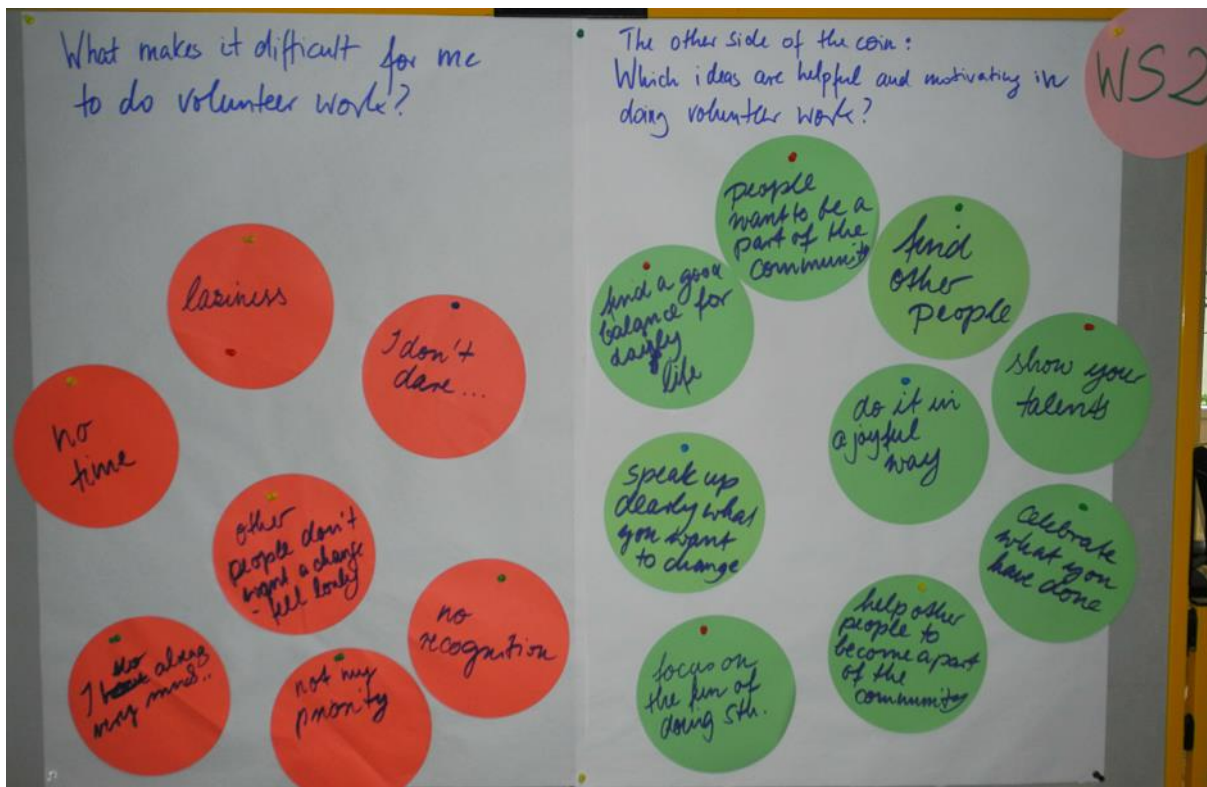 What makes it difficult for me
to do volunteer work?
laziness
I don't
dare...
no
time
other
people don't
want a change
- fell lonly
no
recognition
I do already
very much..
not my
priority
The other side of the coin:
Which ideas are helpful and motivating in
doing volunteer work?
WS2
people
want to be a
part of the
community
find
other
people
find a good
balance for
life
show your
talents
do it in
a joyful
way
speak up
clearly what
you want
to change
celebrate
what you
have done
help other
people to
become a part
of the
community
focus on
the fun of
doing sth.